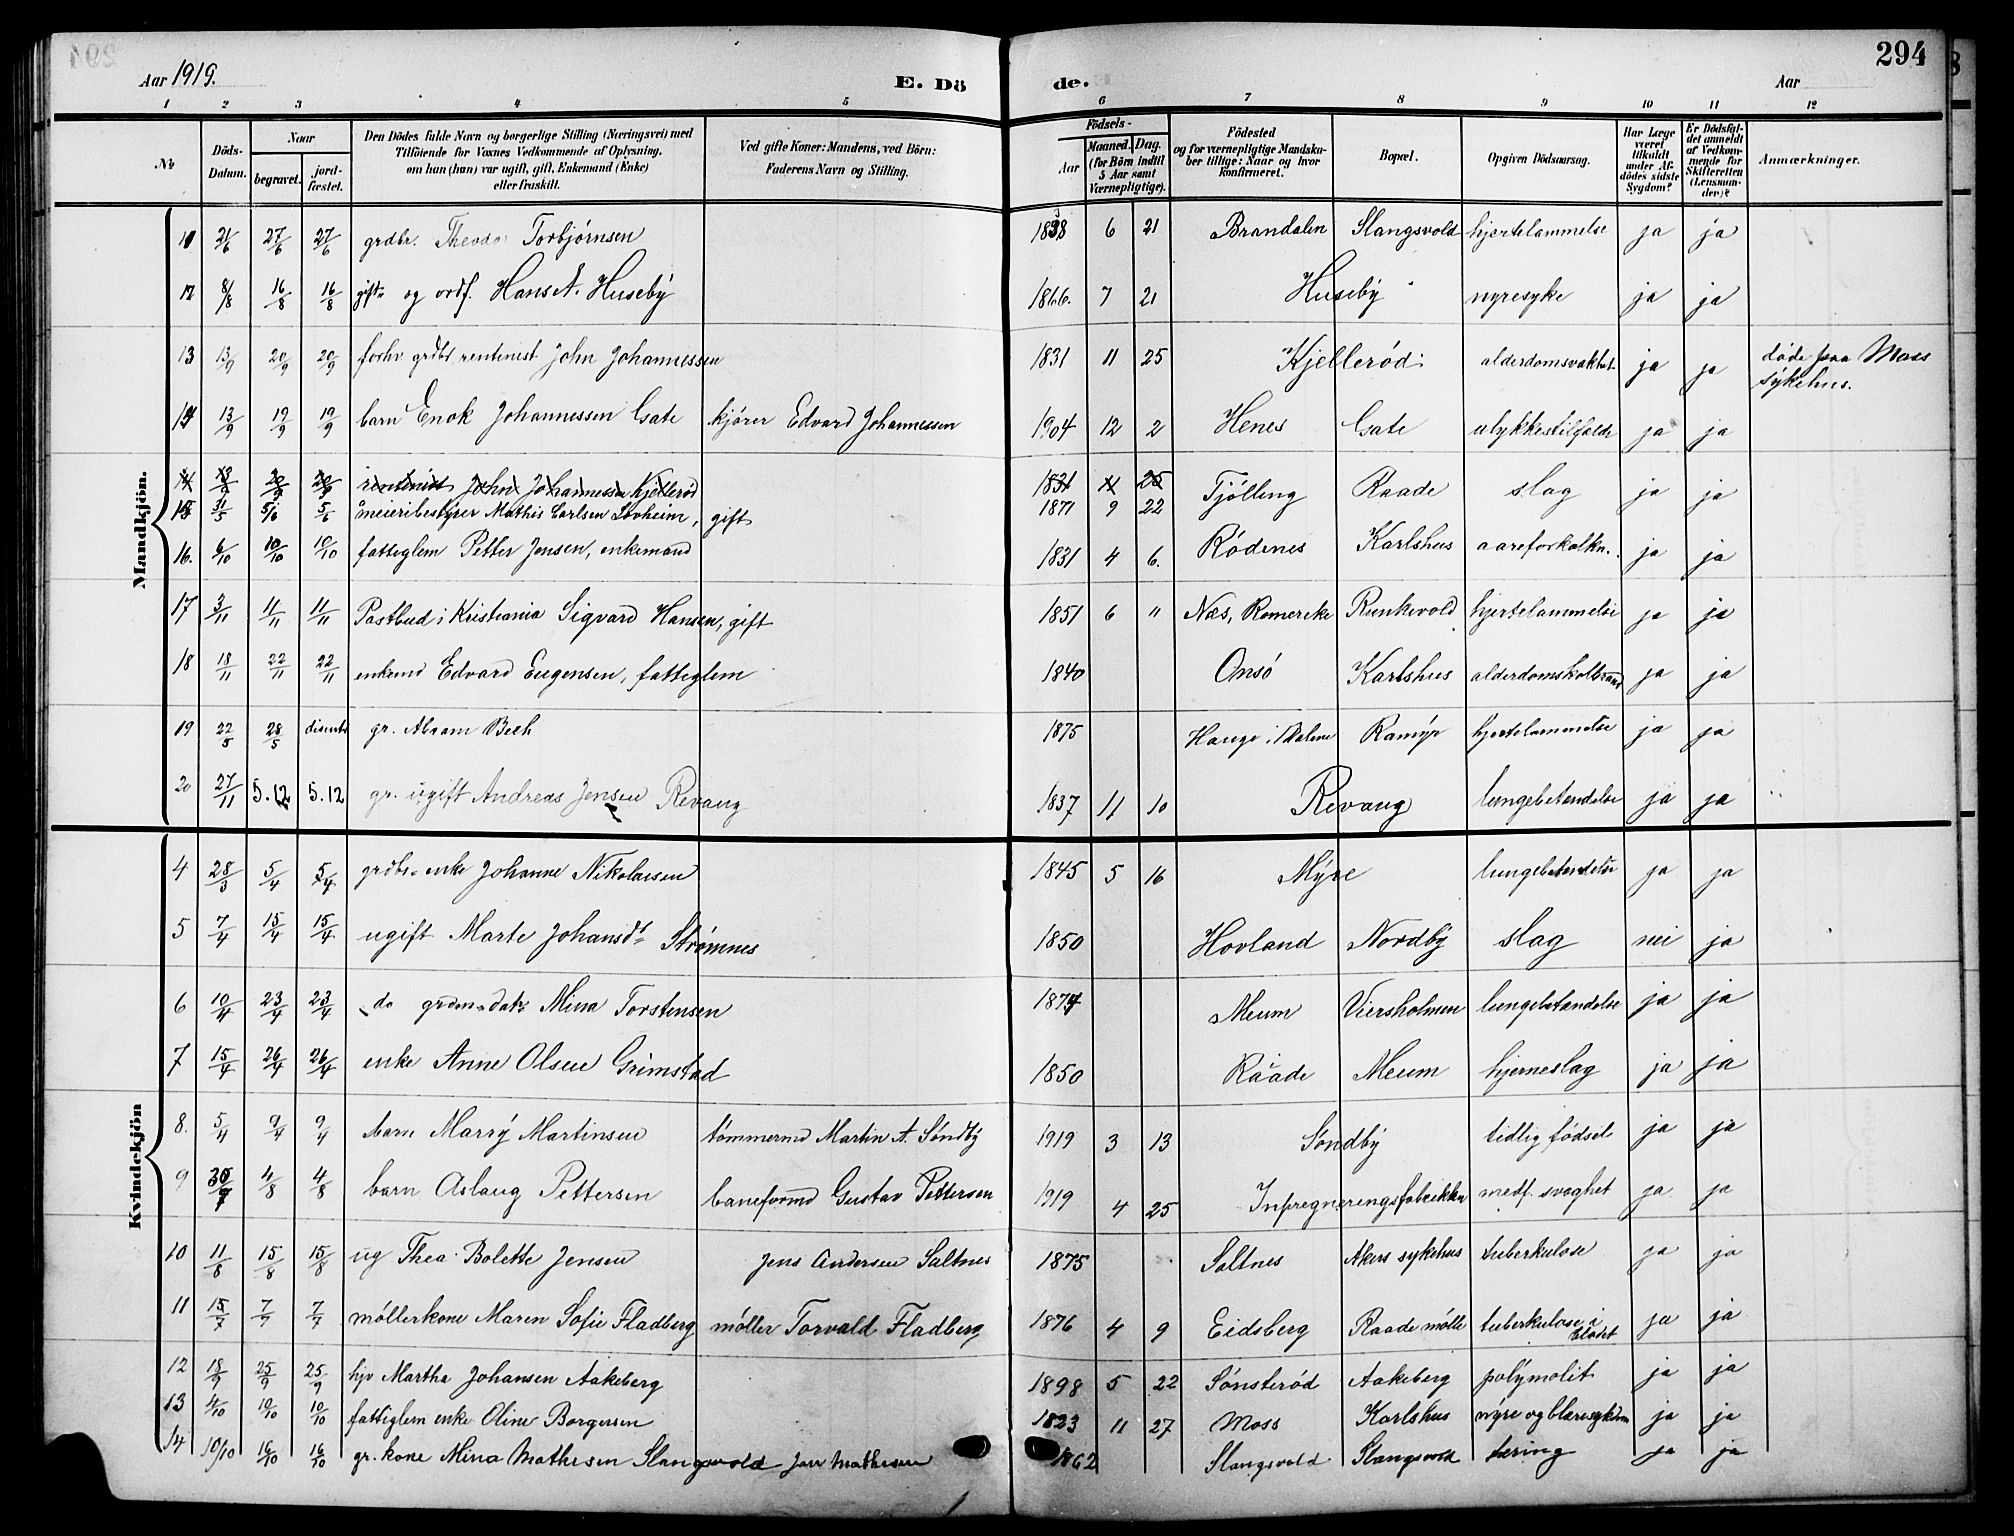 294
Aar 1919. E. Dö de. Aar
1 2 3 4 5 6 7 8 9 10 11 12
No Döds-Datum. Naar begravet. jordfæstet. Den Dödes fulde Navn og borgerlige Stilling (Næringsvei) med Tilföiende for Voxnes Vedkommende af Oplysning, om han (hun) var ugift, gift, Enkemand (Enke) eller fraskilt. Ved gifte Koner: Mandens, ved Börn: Faderens Navn og Stilling. Födsels- Aar Maaned. Dag. (for Börn indtil 5 Aar samt Værnepligtige). Födested og for værnepligtige Mandskaber tillige: Naar og hvor konfirmeret. Bopæl. Opgiven Dödsaarsag. Har Læge været tilkaldt under Afdödes sidste Sygdom? Er Dödsfaldet anmeldt af Vedkommende for Skifteretten (Lensmanden)? Anmærkninger.
Mandkjön.
11 21/6 27/6 27/6 grdbr. Theodor Torbjørnsen 1838 6 21 Brandalen Slangsvold hjertelammelse ja ja
12 8/8 16/8 16/8 og ordf. Hans A. Huseby 1866. 7 21 Huseby nyresyke ja ja
13 13/9 20/9 20/9 forhv grdbr rentenist John Johannessen 1831 11 25 Kjellerød alderdomsvakhet ja ja døde paa Moss sykehus.
14 13/9 19/9 19/9 barn Enok Johannessen Gate kjører Edvard Johannessen 1904 12 2 Henes Gate ulykkestilfælde ja ja
14 13/9 20/9 20/9 rentenist John Johannessen Kjellerød 1831 11 25
15 31/5 5/6 5/6 meieribestyrer Mathis Carlsen Lovheim, gift 1871 9 22 Tjølling Raade slag ja ja
16. 6/10 10/10 10/10 fattiglem Petter Jensen, enkemand 1831 4 6. Rødenes Karlshus aareforkalkn. ja ja
17 3/11 11/11 11/11 Postbud i Kristiania Sigvard Hansen, gift 1851 6 " Næs, Romerike Runkevold hjertelammelse ja ja
18 18/11 22/11 22/11 enkemd Edvard Eugensen, fattiglem 1840 Onsø Karlshus alderdomskolbrand ja ja
19 22/5 28/5 disenter gr. Abram Bech 1875 Hauge i Dalene Ramyr hjertelammelse ja ja
20 27/11 5.12 5.12 gr. ugift Andreas Jensen Revaug 1837 11 10 Revaug lungebetændelse ja ja
Kvindekjön
4 28/3 5/4 5/4 grdbr. enke Johanne Nikolaisen 1845 5 16 Myre lungebetændelse ja ja
5 7/4 15/4 15/4 ugift Marte Johansdt Strømnes 1850 Hovland Nordby slag nei ja
6 10/4 23/4 23/4 do grdmdatr Mina Torstensen 1874 Meum Viersholmen lungebetændelse ja ja
7 15/4 26/4 26/4 enke Anne Olsen Grimstad 1850 Raade Meum hjerneslag ja ja
8. 5/4 9/4 9/4 barn Marry Martinsen tømmermd Martin A. Søndby 1919 3 13 Søndby tidlig fødsel ja ja
9 30/7 4/8 4/8 barn Aslaug Pettersen baneformd Gustav Pettersen 1919 4 25 Inpregneringsfabrikken medf. svaghet ja ja
10 11/8 15/8 15/8 ug Thea Bolette Jensen Jens Andersen Saltnes 1875 Saltnes Akers sykehus tuberkulose ja ja
11 15/7 7/7 7/7 møllerkone Maren Sofie Fladberg møller Torvald Fladberg 1876 4 9 Eidsberg Raade mølle tuberkulose i blodet ja ja
12 18/9 25/9 25/9 hjv Martha Johansen Aakeberg 1898 5 22 Sønsterød Aakeberg polymolit ja ja
13 4/10 10/10 10/10 fattiglem enke Oline Borgersen 1823 11 27 Moss Karlshus nyre og blæresykdom ja ja
14 10/10 16/10 16/10 gr. kone Mina Mathisen Slangsvold Jan Mathisen 1862 Slangsvold Slangsvold tæring ja ja